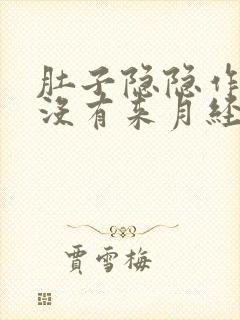 肚子隐隐作
没有来月经
贾雪梅